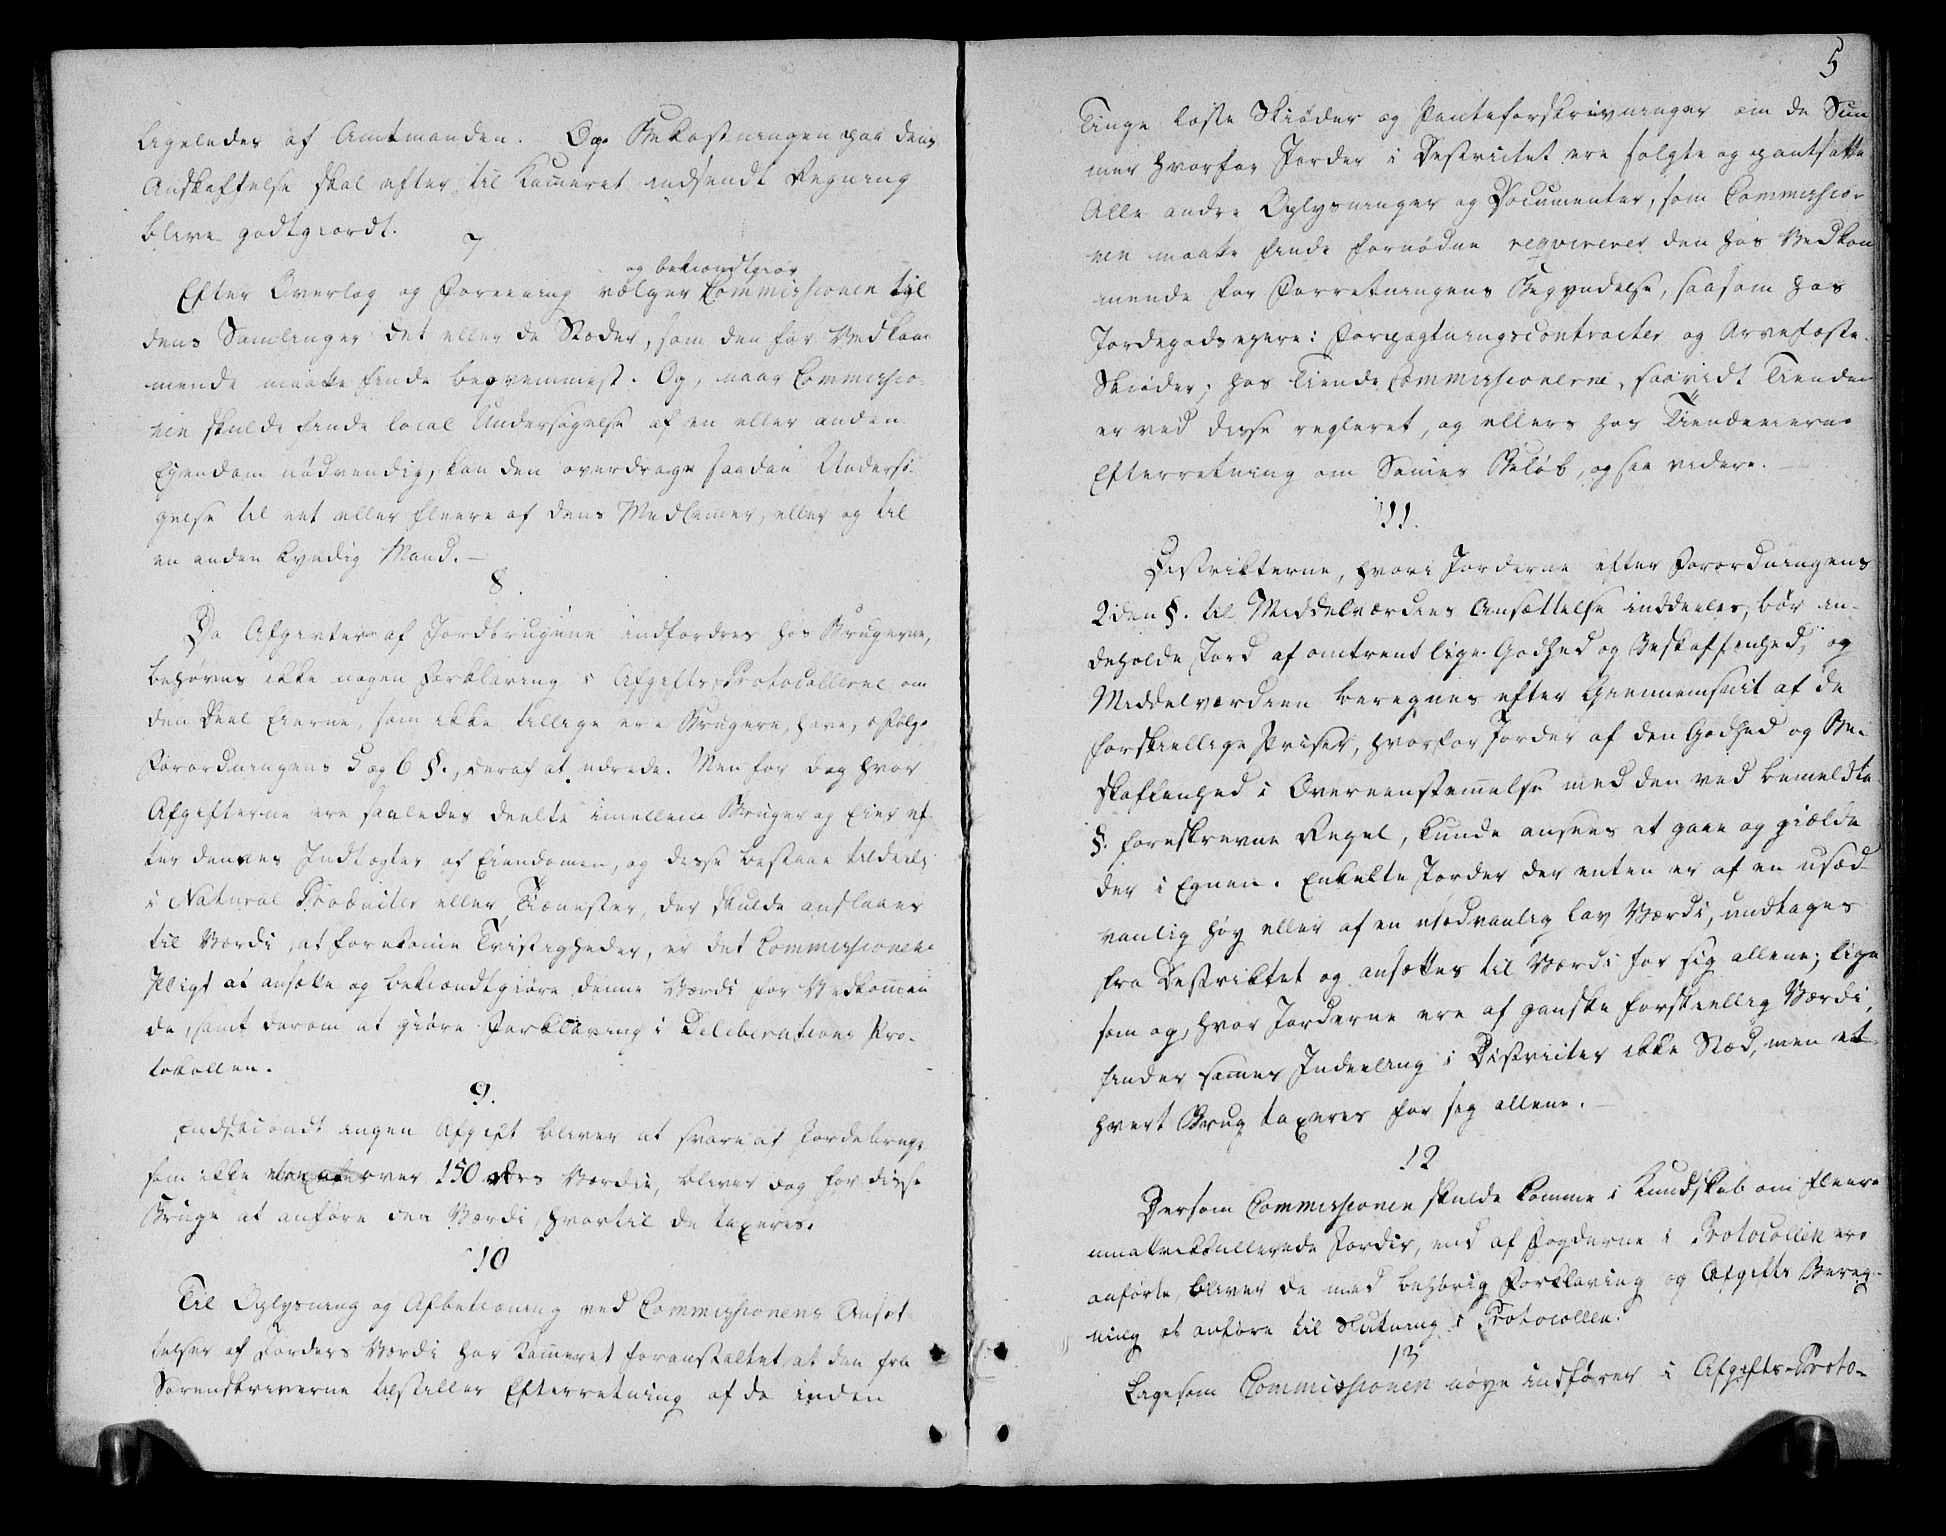 Ligeledes af Amtmanden. Og Bekostningen paa dens
Anskaffelse skal efter til Kam̄eret indsendt Regning
blive godtgiordt.
7
og bekiendtgiør
Efter Overlæg og Forening vælger Commissionen til
dens Samlinger det eller de Stæder, som den for Vedkom̄
mende maatte finde beqvemmest. Og, naar Commissio-
nen skulde finde local Undersøgelse af en eller anden
Eyendom nødvendig, kan den overdrage saadan Undersø-
gelse til eet eller fleere af dens Medlem̄er, eller og til
en anden kyndig Mand. —
8.
Da Afgivter af Jordbrugene indfordres hos Brugerne,
behøves ikke nogen Forklaring i Afgifts-Protocollerne om
den Deel Eierne, som ikke tillige ere Brugere, have, ifølge
Forordningens 5 og 6 §., deraf at udrede. Men for dog hvor
Afgifterne ere saaledes deelte imellem Bruger og Eier ef-
ter dennes Indtægter af Eiendomen, og disse bestaae tildeels
i Natural Producter eller Tienester, der skulde anslaaes
til Værdi, at forekom̄e Tvistigheder, er det Commissionens
Pligt at ansætte og bekiendtgiøre denne Værdi for Vedkom̄en
de, samt derom at giøre Forklaring i Deliberations Pro-
tokollen.
9.
Endskiøndt ingen Afgift bliver at svare af Jordebruge
som ikke ere over 150 rdrs Værdie, bliver dog for disse
Bruge at anføre den Værdi, hvortil de taxeres.
10
Til Oplysning og Afbetioning ved Commissionens Ansæt-
telser af Jorders Værdi har Kam̄eret foranstaltet, at den fra
Sorenskriverne tilstilles Efterretning af de inden
5
Tinge læste Skiøder og Panteforskrivninger om de Sum
mer hvorfor Jorder i Destrictet ere solgte og pantsatte
Alle andre Oplysninger og Documenter, som Commissio-
nen maatte finde fornødne reqvireres den hos Vedkom
mende før Forretningens Begyndelse, saasom hos
Jordegodseyere: Forpagtningscontracter og Arvefæste-
Skiøder; hos Tiende Commissionerne, saavidt Tienden
er ved disse regleret, og ellers hos Tiendeeierne
Efterretning om Sam̄es Beløb, og saa videre. —
11.
Distrikterne, hvori Jorderne efter Forordningens
2den §. til Middelværdiens Ansættelse inddeeles, bør in-
deholde Jord af omtrent lige Godhed og Beskaffenhed, og
Middelværdien beregnes efter Giennemsnit af de
forskiellige Priser, hvorfor Jorder af den Godhed og Be-
skaffenhed i Overeenstem̄else med den ved bemeldte
§. foreskrevne Regel, kunde ansees at gaae og gielde
der i Egnen. Enkelte Jorder der enten er af en usæd-
vanlig høy eller af en usædvanlig lav Værdi, undtages
fra Destriktet og ansættes til Værdi for sig allene; lige
som og, hvor Jorderne ere af ganske forskiellig Værdi,
finder sam̄es Indeeling i Districter ikke Stæd, men et-
hvert Brug taxeres for sig allene. —
12
Dersom Commissionen skulde komme i Kundskab om fleere
umatrikkullerede Jorder, end af Fogderne i Protocollen ere
anførte, bliver de med behørig Forklaring og Afgifts Bereg-
ning at anføre til Slutning i Protocollen.
13
Ligesom Commissionen nøye indfører i Afgifts-Proto-